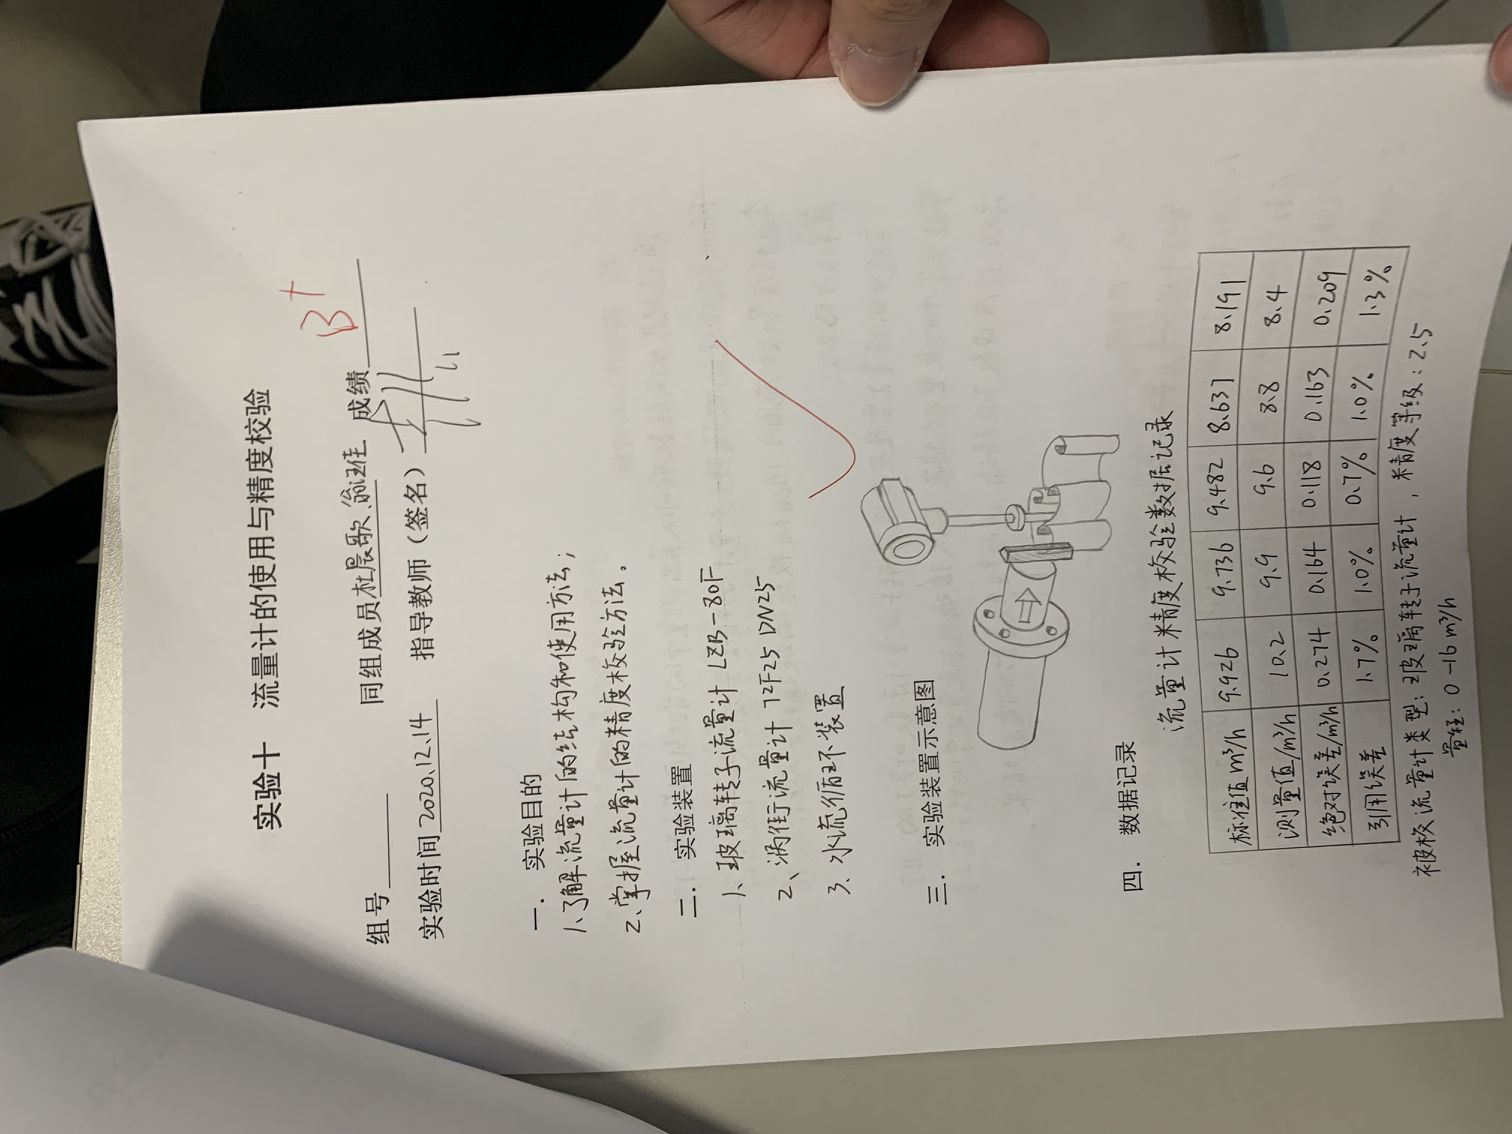 实验十 流量计的使用与精度校验
B+
组号 同组成员杜晨歌、翁汪佳 成绩
实验时间 2020.12.14 指导教师（签名）
一. 实验目的
1、了解流量计的结构和使用方法；
2、掌握流量计的精度校验方法。
二. 实验装置
1、玻璃转子流量计 LZB-80F
2、涡街流量计 72F25 DN25
3、水流循环装置
三. 实验装置示意图
四. 数据记录
流量计精度校验数据记录
标准值 m³/h 9.926 9.736 9.482 8.637 8.191
测量值/m³/h 10.2 9.9 9.6 8.8 8.4
绝对误差/m³/h 0.274 0.164 0.118 0.163 0.209
引用误差 1.7% 1.0% 0.7% 1.0% 1.3%
被校流量计类型：玻璃转子流量计，精度等级：2.5
量程：0-16 m³/h